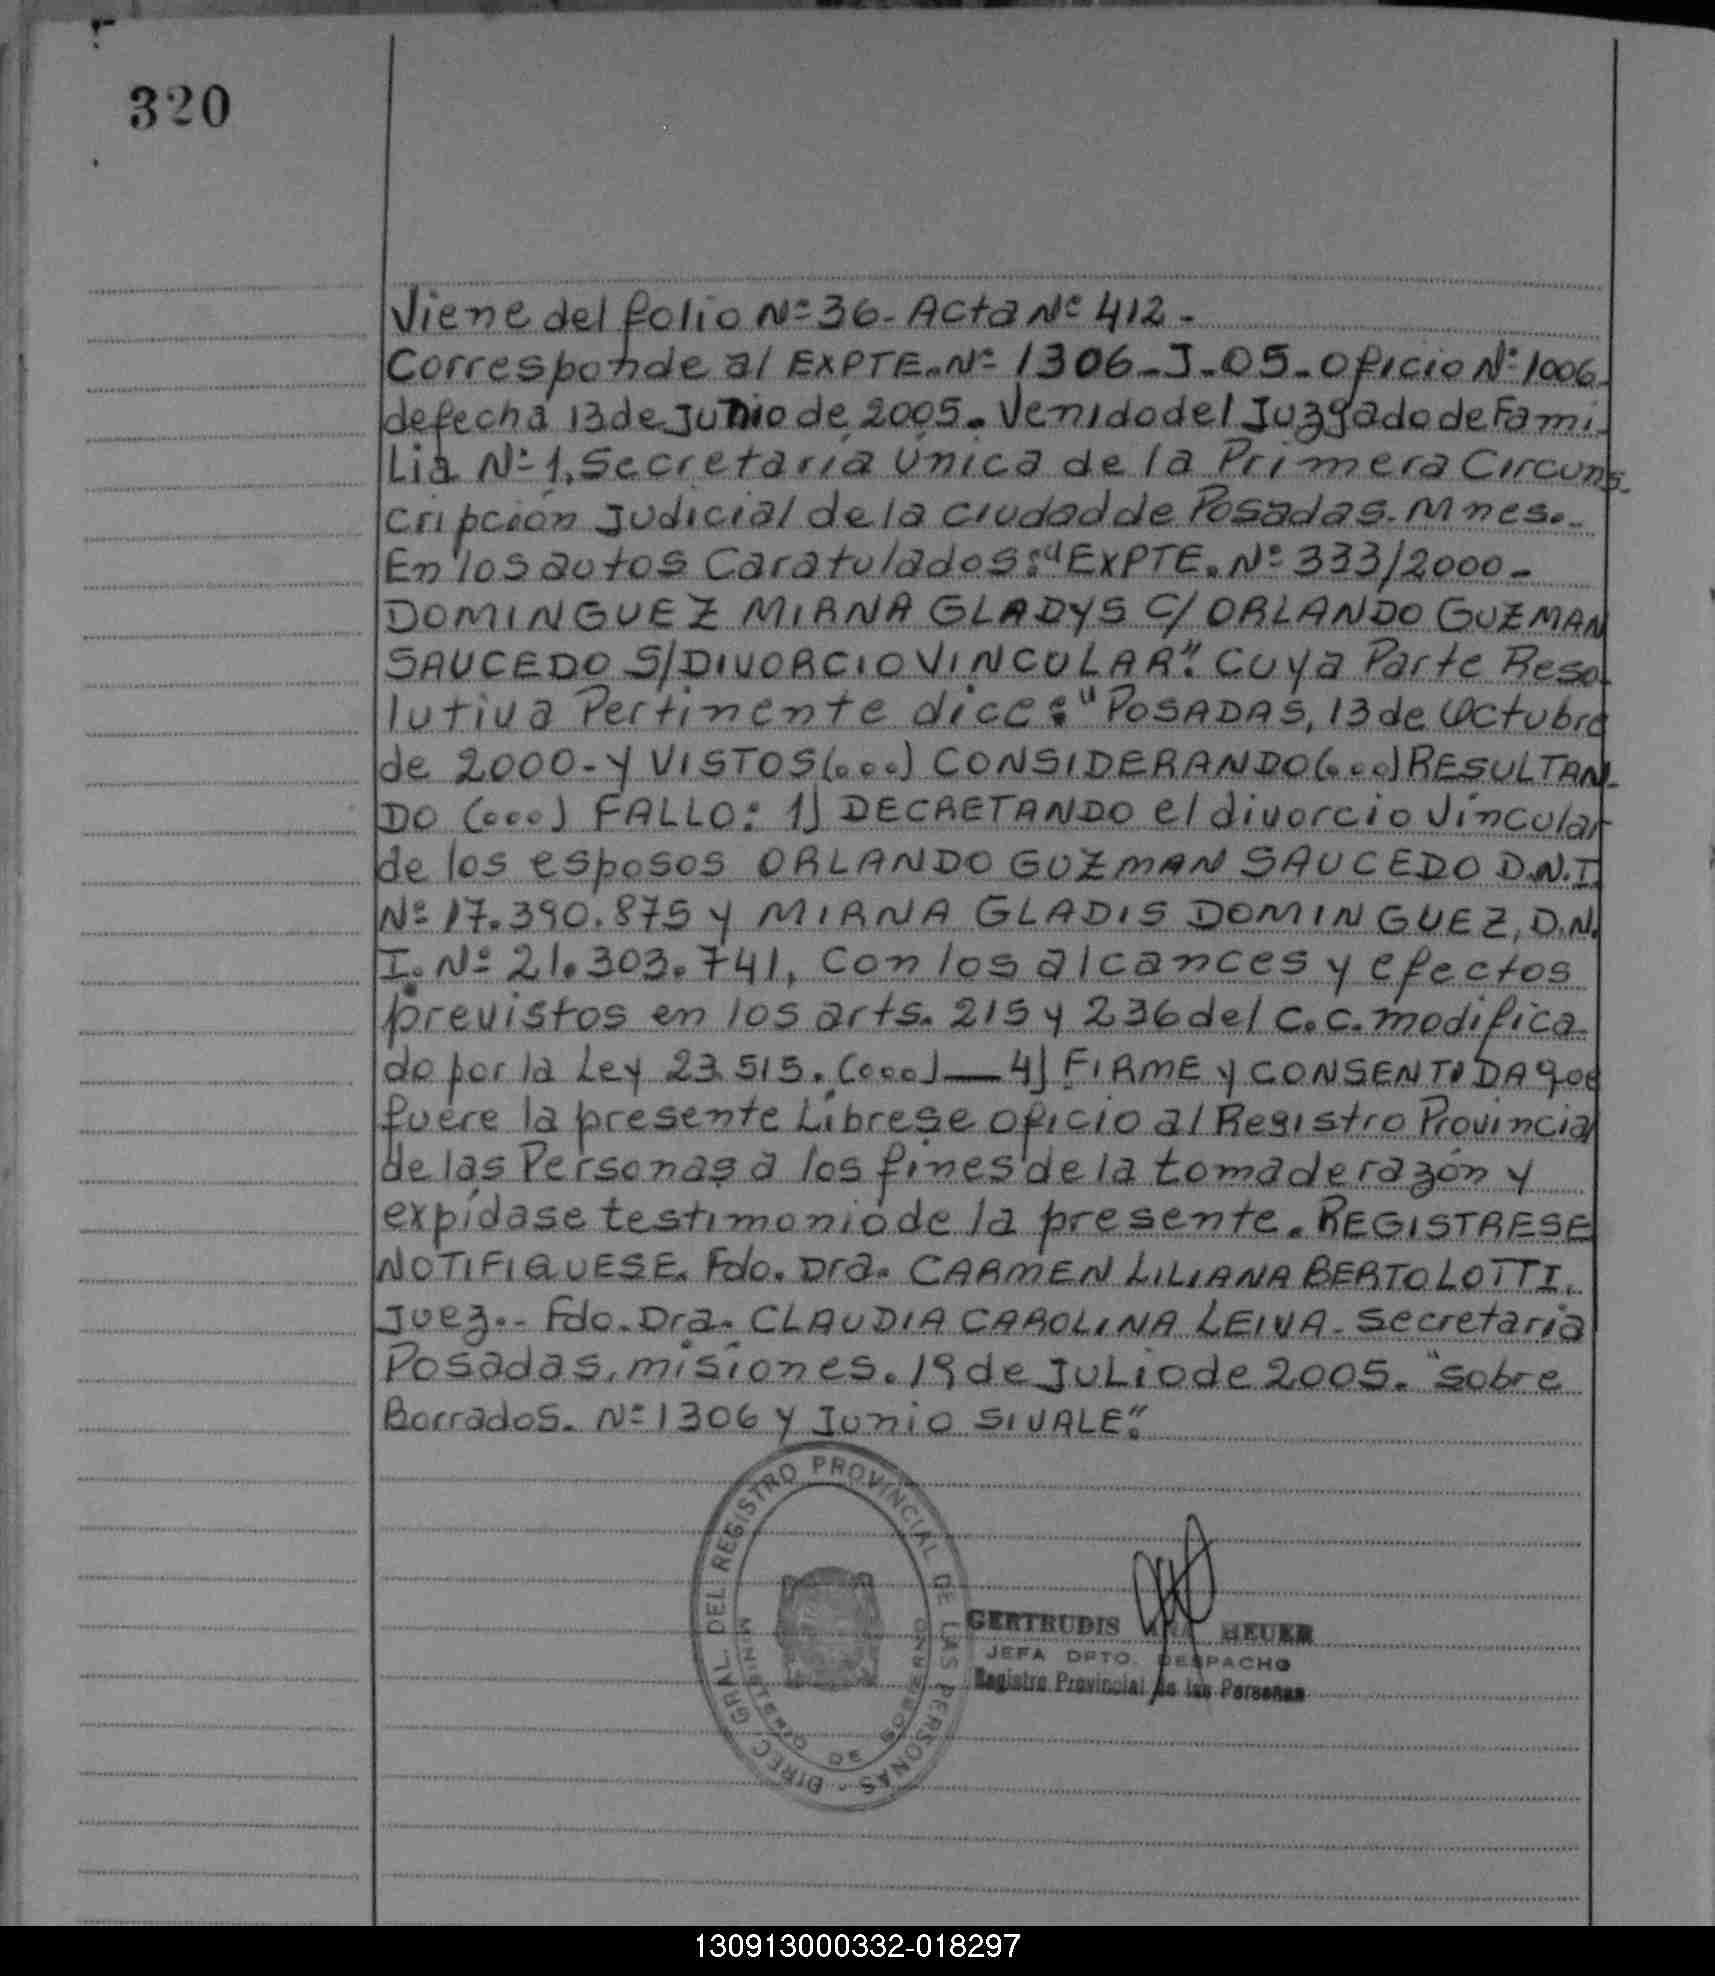 320
Viene del folio Nº 36- Acta Nº 412-
Corresponde al EXPTE. Nº 1306-J-05-Oficio Nº 1006
de fecha 13 de Junio de 2005. Venido del Juzgado de Fami-
Lia Nº 1, Secretaría Única de la Primera Circuns-
cripción Judicial de la ciudad de Posadas. Mnes.-
En los autos Caratulados: "EXPTE. Nº 333/2000-
DOMINGUEZ MIRNA GLADYS C/ ORLANDO GUZMAN
SAUCEDO S/DIVORCIO VINCULAR". Cuya Parte Reso-
lutiva Pertinente dice: "POSADAS, 13 de Octubre
de 2000-Y VISTOS(...) CONSIDERANDO(...) RESULTAN-
DO (...) FALLO: 1) DECRETANDO el divorcio Víncular
de los esposos ORLANDO GUZMAN SAUCEDO D.N.I.
Nº 17.390.875 y MIRNA GLADIS DOMINGUEZ, D.N.
I. Nº 21.303.741, con los alcances y efectos
previstos en los arts. 215 y 236 del C.C. modifica-
do por la Ley 23.515. (...)—4) FIRME y CONSENTIDA que
fuere la presente Líbrese oficio al Registro Provincial
de las Personas a los fines de la toma de razón y
expídase testimonio de la presente. REGISTRESE
NOTIFIQUESE. Fdo. Dra. CARMEN LILIANA BERTOLOTTI,
Juez.- Fdo. Dra. CLAUDIA CAROLINA LEIVA- Secretaria
Posadas, misiones. 19 de Julio de 2005. "Sobre
Borrados. Nº 1306 y Junio SI VALE".
DIREC. GRAL. DEL REGISTRO PROVINCIAL DE LAS PERSONAS
MINISTERIO DE GOBIERNO
GERTRUDIS HEUER
JEFA DPTO. DESPACHO
Registro Provincial de las Personas
130913000332-018297